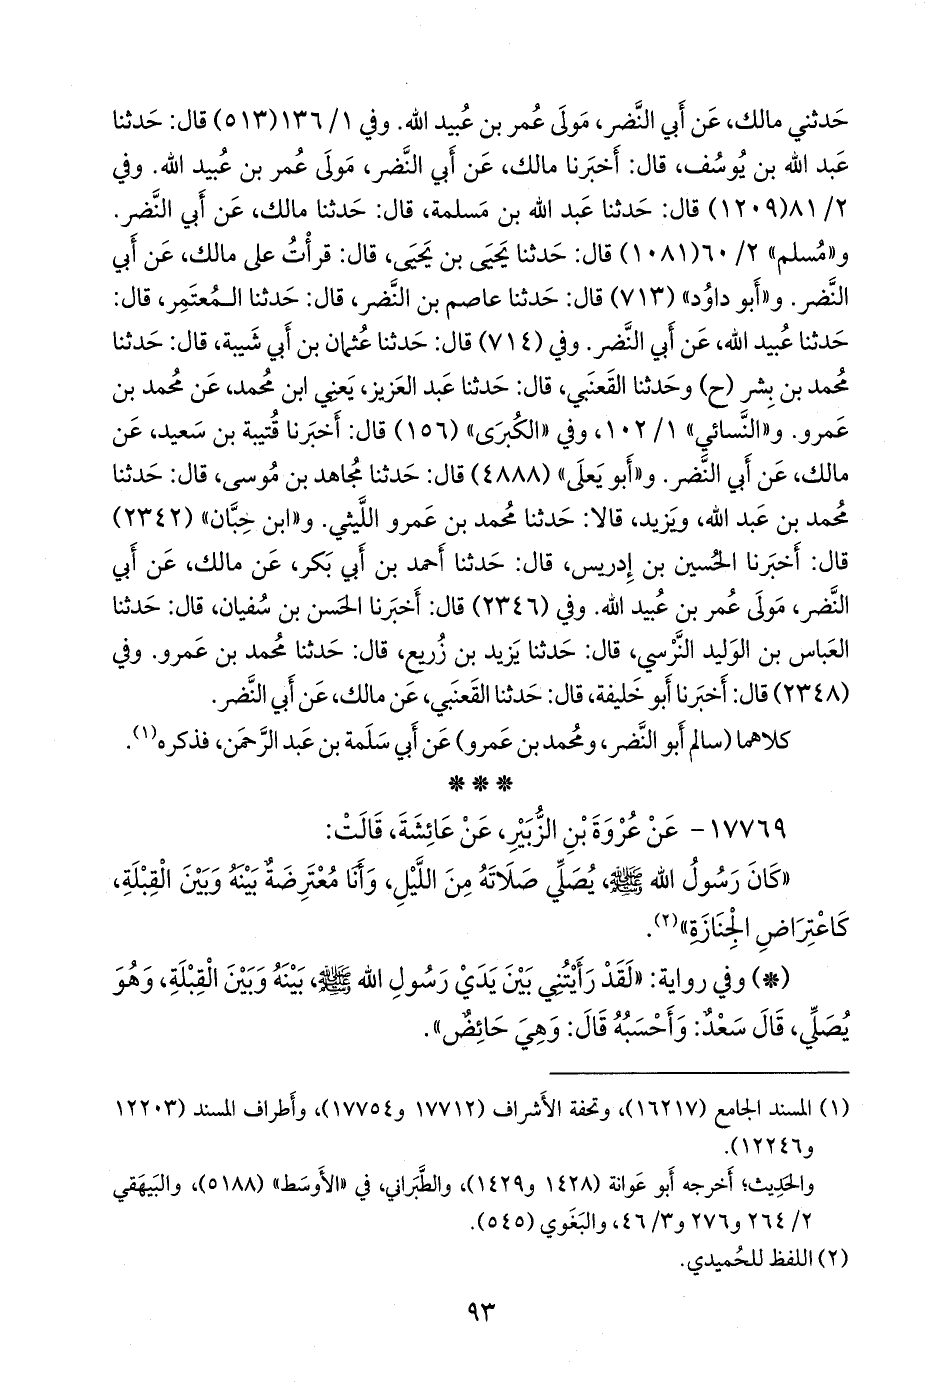 حَدثني مالك، عَن أَبي النَّضر، مَولَى عُمر بن عُبيد الله. وفي ١/ ١٣٦(٥١٣) قال: حَدثنا
عَبد الله بن يُوسُف، قال: أَخبَرنا مالك، عَن أَبي النَّضر، مَولَى عُمر بن عُبيد الله. وفي
٢/ ٨١(١٢٠٩) قال: حَدثنا عَبد الله بن مَسلمة، قال: حَدثنا مالك، عَن أَبي النَّضر.
و«مُسلم» ٢/ ٦٠(١٠٨١) قال: حَدثنا يَحيَى بن يَحيَى، قال: قرأْتُ على مالك، عَن أَبي
النَّضر. و«أَبو داوُد» (٧١٣) قال: حَدثنا عاصم بن النَّضر، قال: حَدثنا الـمُعتَمِر، قال:
حَدثنا عُبيد الله، عَن أَبي النَّضر. وفي (٧١٤) قال: حَدثنا عُثمان بن أَبي شَيبة، قال: حَدثنا
مُحمد بن بِشر (ح) وحَدثنا القَعنَبي، قال: حَدثنا عَبد العَزيز، يَعنِي ابن مُحمد، عَن مُحمد بن
عَمرو. و«النَّسائي» ١/ ١٠٢، وفي «الكُبرَى» (١٥٦) قال: أَخبَرنا قُتيبة بن سَعيد، عَن
مالك، عَن أَبي النَّضر. و«أَبو يَعلَى» (٤٨٨٨) قال: حَدثنا مُجاهد بن مُوسى، قال: حَدثنا
مُحمد بن عَبد الله، ويَزيد، قالا: حَدثنا مُحمد بن عَمرو اللَّيثي. و«ابن حِبَّان» (٢٣٤٢)
قال: أَخبَرنا الحُسين بن إِدريس، قال: حَدثنا أَحمد بن أَبي بَكر، عَن مالك، عَن أَبي
النَّضر، مَولَى عُمر بن عُبيد الله. وفي (٢٣٤٦) قال: أَخبَرنا الحَسن بن سُفيان، قال: حَدثنا
العَباس بن الوَليد النَّرْسي، قال: حَدثنا يَزيد بن زُريع، قال: حَدثنا مُحمد بن عَمرو. وفي
(٢٣٤٨) قال: أَخبَرنا أَبو خَليفة، قال: حَدثنا القَعنَبي، عَن مالك، عَن أَبي النَّضر.
كلاهما (سالم أَبو النَّضر، ومُحمد بن عَمرو) عَن أَبي سَلَمة بن عَبد الرَّحمَن، فذكره(١).
* * *
١٧٧٦٩- عَنْ عُرْوَةَ بْنِ الزُّبَيْرِ، عَنْ عَائِشَةَ، قَالَتْ:
«كَانَ رَسُولُ الله ﷺ، يُصَلِّي صَلَاتَهُ مِنَ اللَّيْلِ، وَأَنَا مُعْتَرِضَةٌ بَيْنَهُ وَبَيْنَ الْقِبْلَةِ،
كَاعْتِرَاضِ الْجِنَازَةِ»(٢).
(*) وفي رواية: «لَقَدْ رَأَيْتُنِي بَيْنَ يَدَيْ رَسُولِ الله ﷺ، بَيْنَهُ وَبَيْنَ الْقِبْلَةِ، وَهُوَ
يُصَلِّي، قَالَ سَعْدٌ: وَأَحْسَبُهُ قَالَ: وَهِيَ حَائِضٌ».
(١) المسند الجامع (١٦٢١٧)، وتحفة الأَشراف (١٧٧١٢ و١٧٧٥٤)، وأَطراف المسند (١٢٢٠٣
و١٢٢٤٦).
والحَدِيث؛ أَخرجه أَبو عَوانة (١٤٢٨ و١٤٢٩)، والطَّبَراني، في «الأَوسَط» (٥١٨٨)، والبَيهَقي
٢/ ٢٦٤ و٢٧٦ و٣/ ٤٦، والبَغَوي (٥٤٥).
(٢) اللفظ للحُميدي.
٩٣